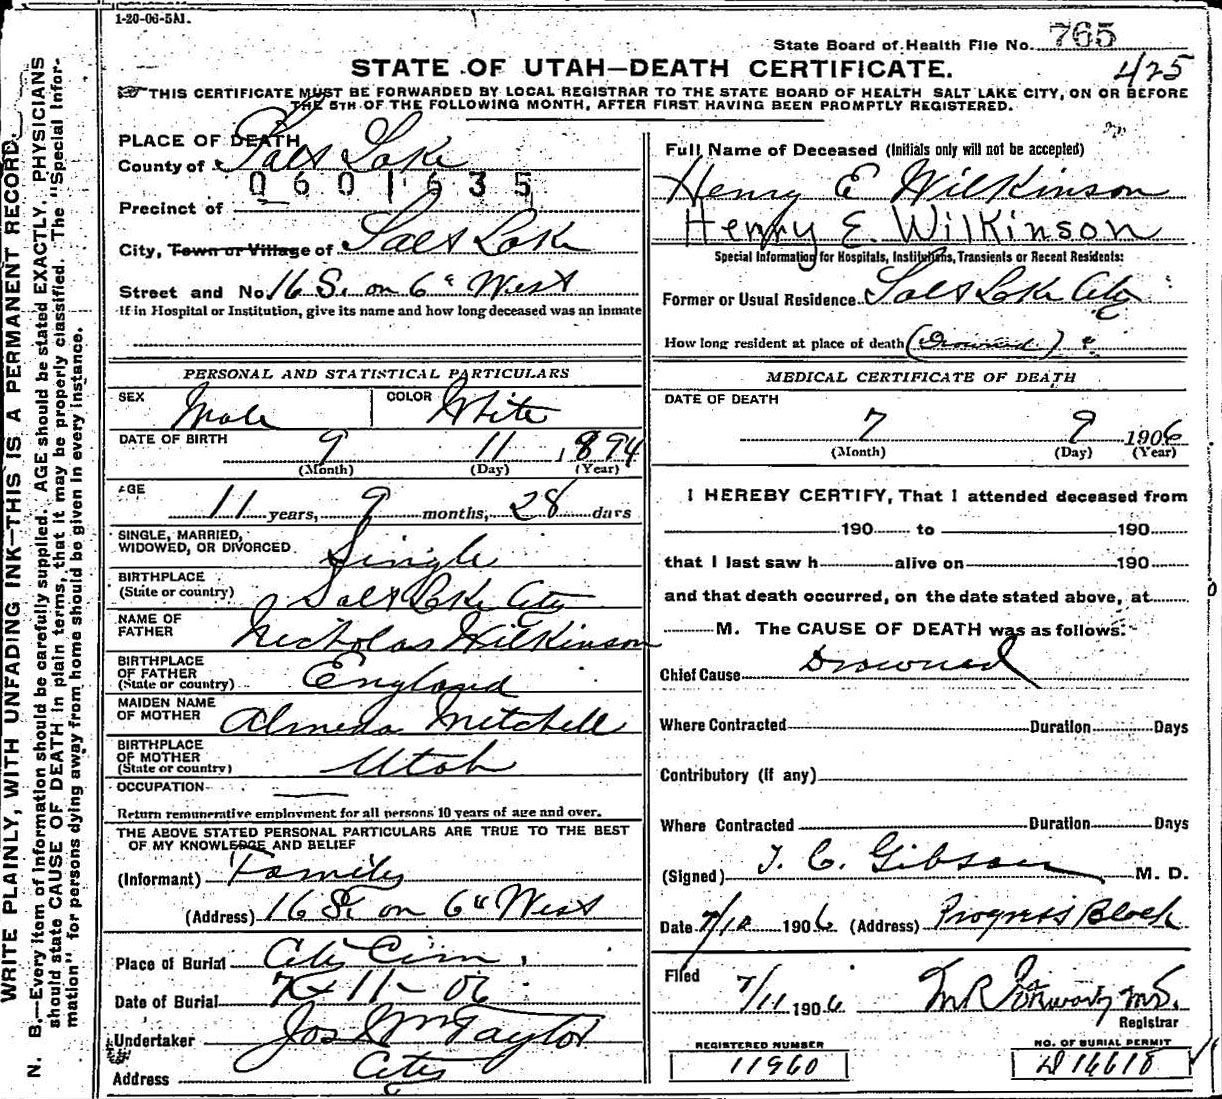 1-20-06-5M.
State Board of Health File No. 765
425
STATE OF UTAH—DEATH CERTIFICATE.
THIS CERTIFICATE MUST BE FORWARDED BY LOCAL REGISTRAR TO THE STATE BOARD OF HEALTH SALT LAKE CITY, ON OR BEFORE
THE 5TH OF THE FOLLOWING MONTH, AFTER FIRST HAVING BEEN PROMPTLY REGISTERED.
WRITE PLAINLY, WITH UNFADING INK—THIS IS A PERMANENT RECORD.
N. B.—Every item of information should be carefully supplied. AGE should be stated EXACTLY. PHYSICIANS
should state CAUSE OF DEATH in plain terms, that it may be properly classified. The "Special Infor-
mation" for persons dying away from home should be given in every instance.
PLACE OF DEATH
County of Salt Lake
0601635
Precinct of
City, Town or Village of Salt Lake
Street and No. 16 S. on 6" West
If in Hospital or Institution, give its name and how long deceased was an inmate
PERSONAL AND STATISTICAL PARTICULARS
SEX Male COLOR White
DATE OF BIRTH 9 11 1894
(Month) (Day) (Year)
AGE 11 years, 9 months, 28 days
SINGLE, MARRIED,
WIDOWED, OR DIVORCED Single
BIRTHPLACE
(State or country) Salt Lake City
NAME OF
FATHER Nicholas Wilkinson
BIRTHPLACE
OF FATHER
(State or country) England
MAIDEN NAME
OF MOTHER Almeda Mitchell
BIRTHPLACE
OF MOTHER
(State or country) Utah
OCCUPATION
Return remunerative employment for all persons 10 years of age and over.
THE ABOVE STATED PERSONAL PARTICULARS ARE TRUE TO THE BEST
OF MY KNOWLEDGE AND BELIEF
(Informant) Family
(Address) 16 S. on 6" West
Place of Burial City Cem.
Date of Burial 7-11-06
Undertaker Jos Wm Taylor
Address City
Full Name of Deceased (Initials only will not be accepted)
Henry E Wilkinson
Henry E. Wilkinson
Special Information for Hospitals, Institutions, Transients or Recent Residents:
Former or Usual Residence Salt Lake City
How long resident at place of death (Drowned)
MEDICAL CERTIFICATE OF DEATH
DATE OF DEATH
7 9 1906
(Month) (Day) (Year)
I HEREBY CERTIFY, That I attended deceased from
190 to 190
that I last saw h alive on 190
and that death occurred, on the date stated above, at
M. The CAUSE OF DEATH was as follows:
Chief Cause Drowned
Where Contracted Duration Days
Contributory (if any)
Where Contracted Duration Days
(Signed) J. C. Gibson M. D.
Date 7/10 1906 (Address) Progress Block
Filed 7/11 1906 M.D.
Registrar
REGISTERED NUMBER
11960
NO. OF BURIAL PERMIT
D 16618